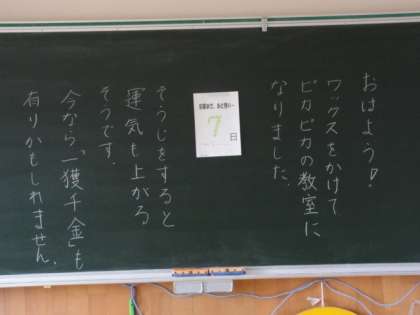 おはよう!
ワックスをかけて
ピカピカの教室に
なりました。
7
日
そうじをすると
運気も上がる
そうです。
今なら、「一獲千金」も
有りかもしれません。